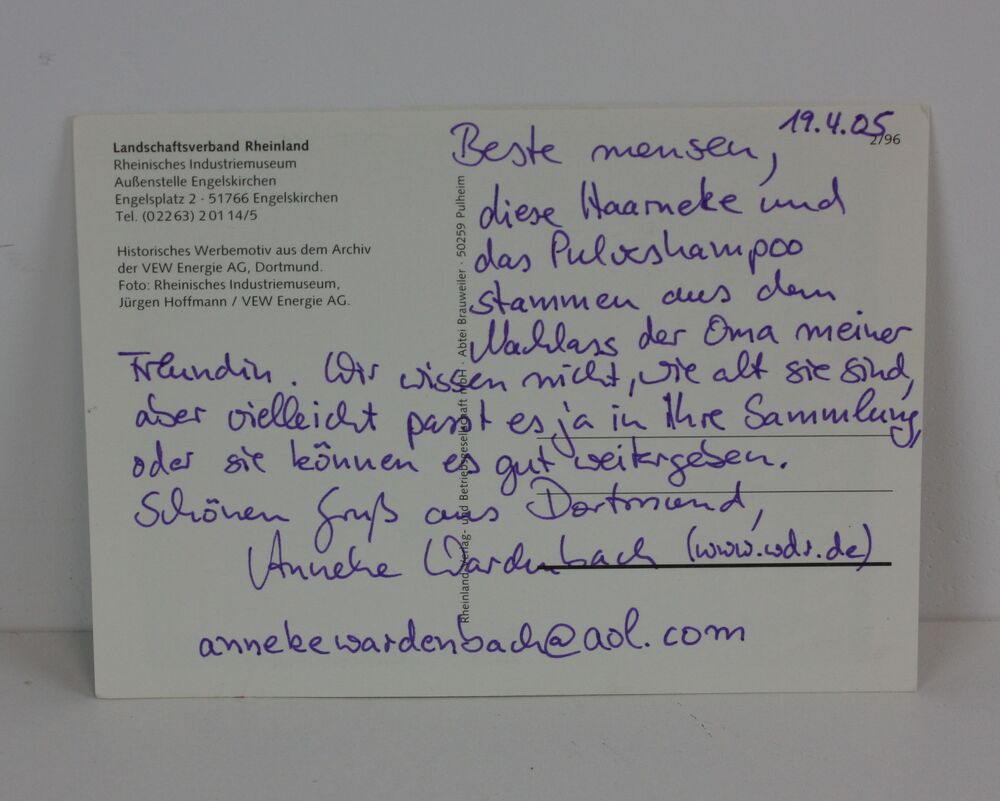 Landschaftsverband Rheinland
Rheinisches Industriemuseum
Außenstelle Engelskirchen
Engelsplatz 2 · 51766 Engelskirchen
Tel. (0 22 63) 2 01 14/5
Historisches Werbemotiv aus dem Archiv
der VEW Energie AG, Dortmund.
Foto: Rheinisches Industriemuseum,
Jürgen Hoffmann / VEW Energie AG.
Rheinland-Verlag- und Betriebsgesellschaft mbH · Abtei Brauweiler · 50259 Pulheim
2/96
19.4.05
Beste mensen,
diese Haarneke und
das Pulvershampoo
stammen aus dem
Nachlass der Oma meiner
Freundin. Wir wissen nicht, wie alt sie sind,
aber vielleicht passt es ja in Ihre Sammlung,
oder sie können es gut weitergeben.
Schönen Gruß aus Dortmund,
Anneke Wardenbach (www.wdr.de)
annekewardenbach@aol.com